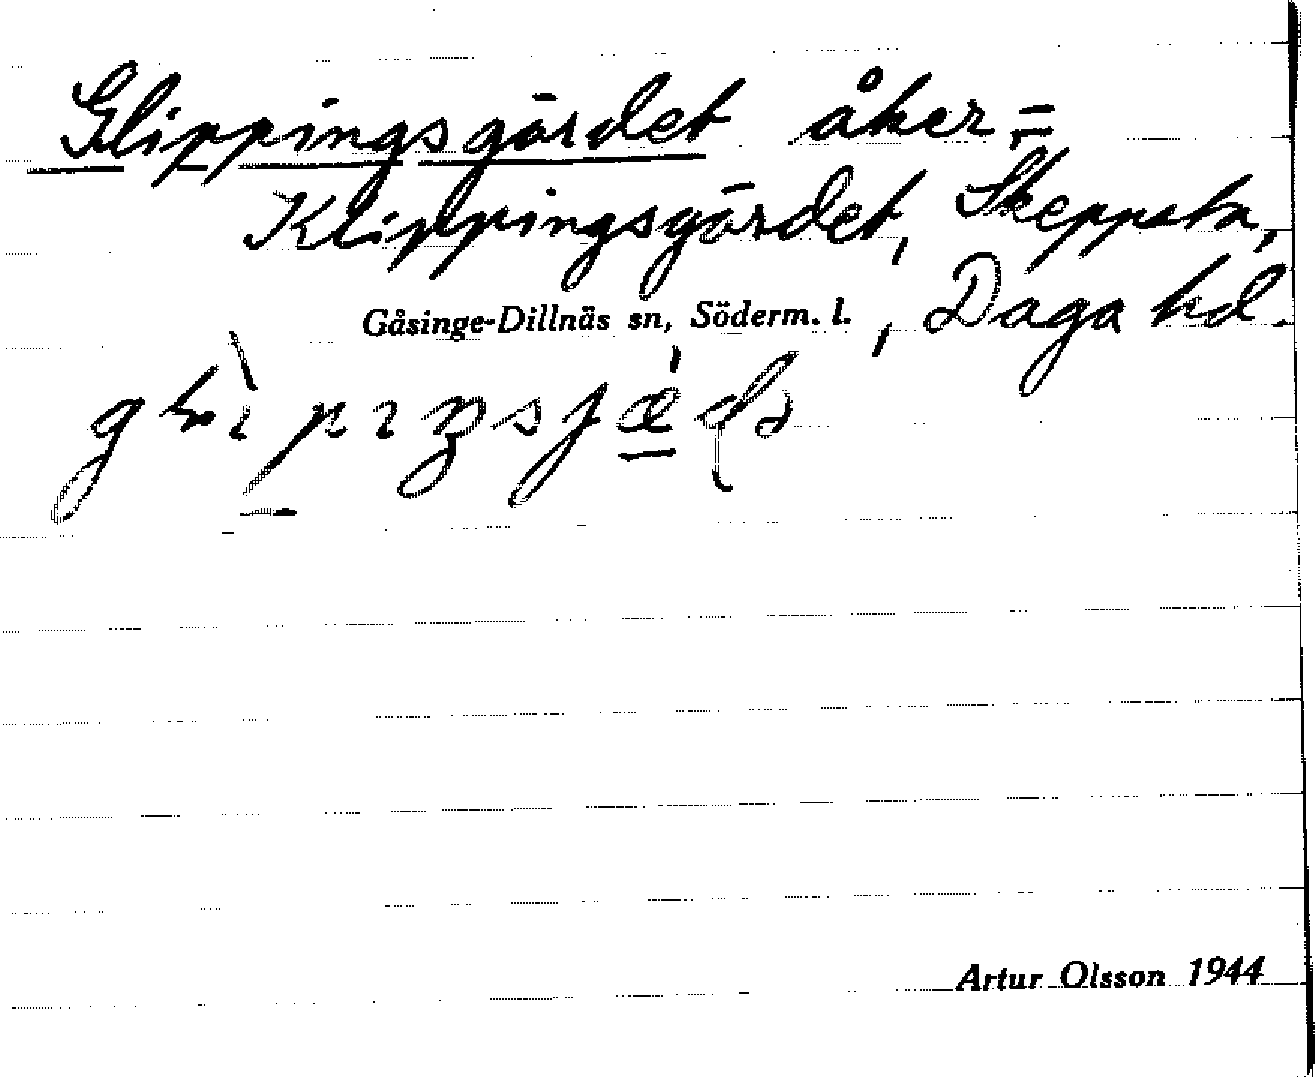 Glippingsgärdet åker =
Klippingsgärdet, Skeppsta,
Gåsinge-Dillnäs sn, Söderm. l. , Daga hd.
Artur Olsson 1944